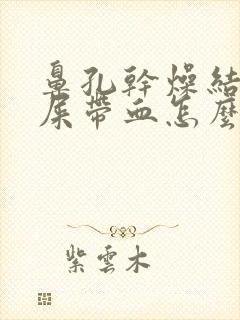 鼻孔幹燥結
屎帶血怎麼
紫雲木